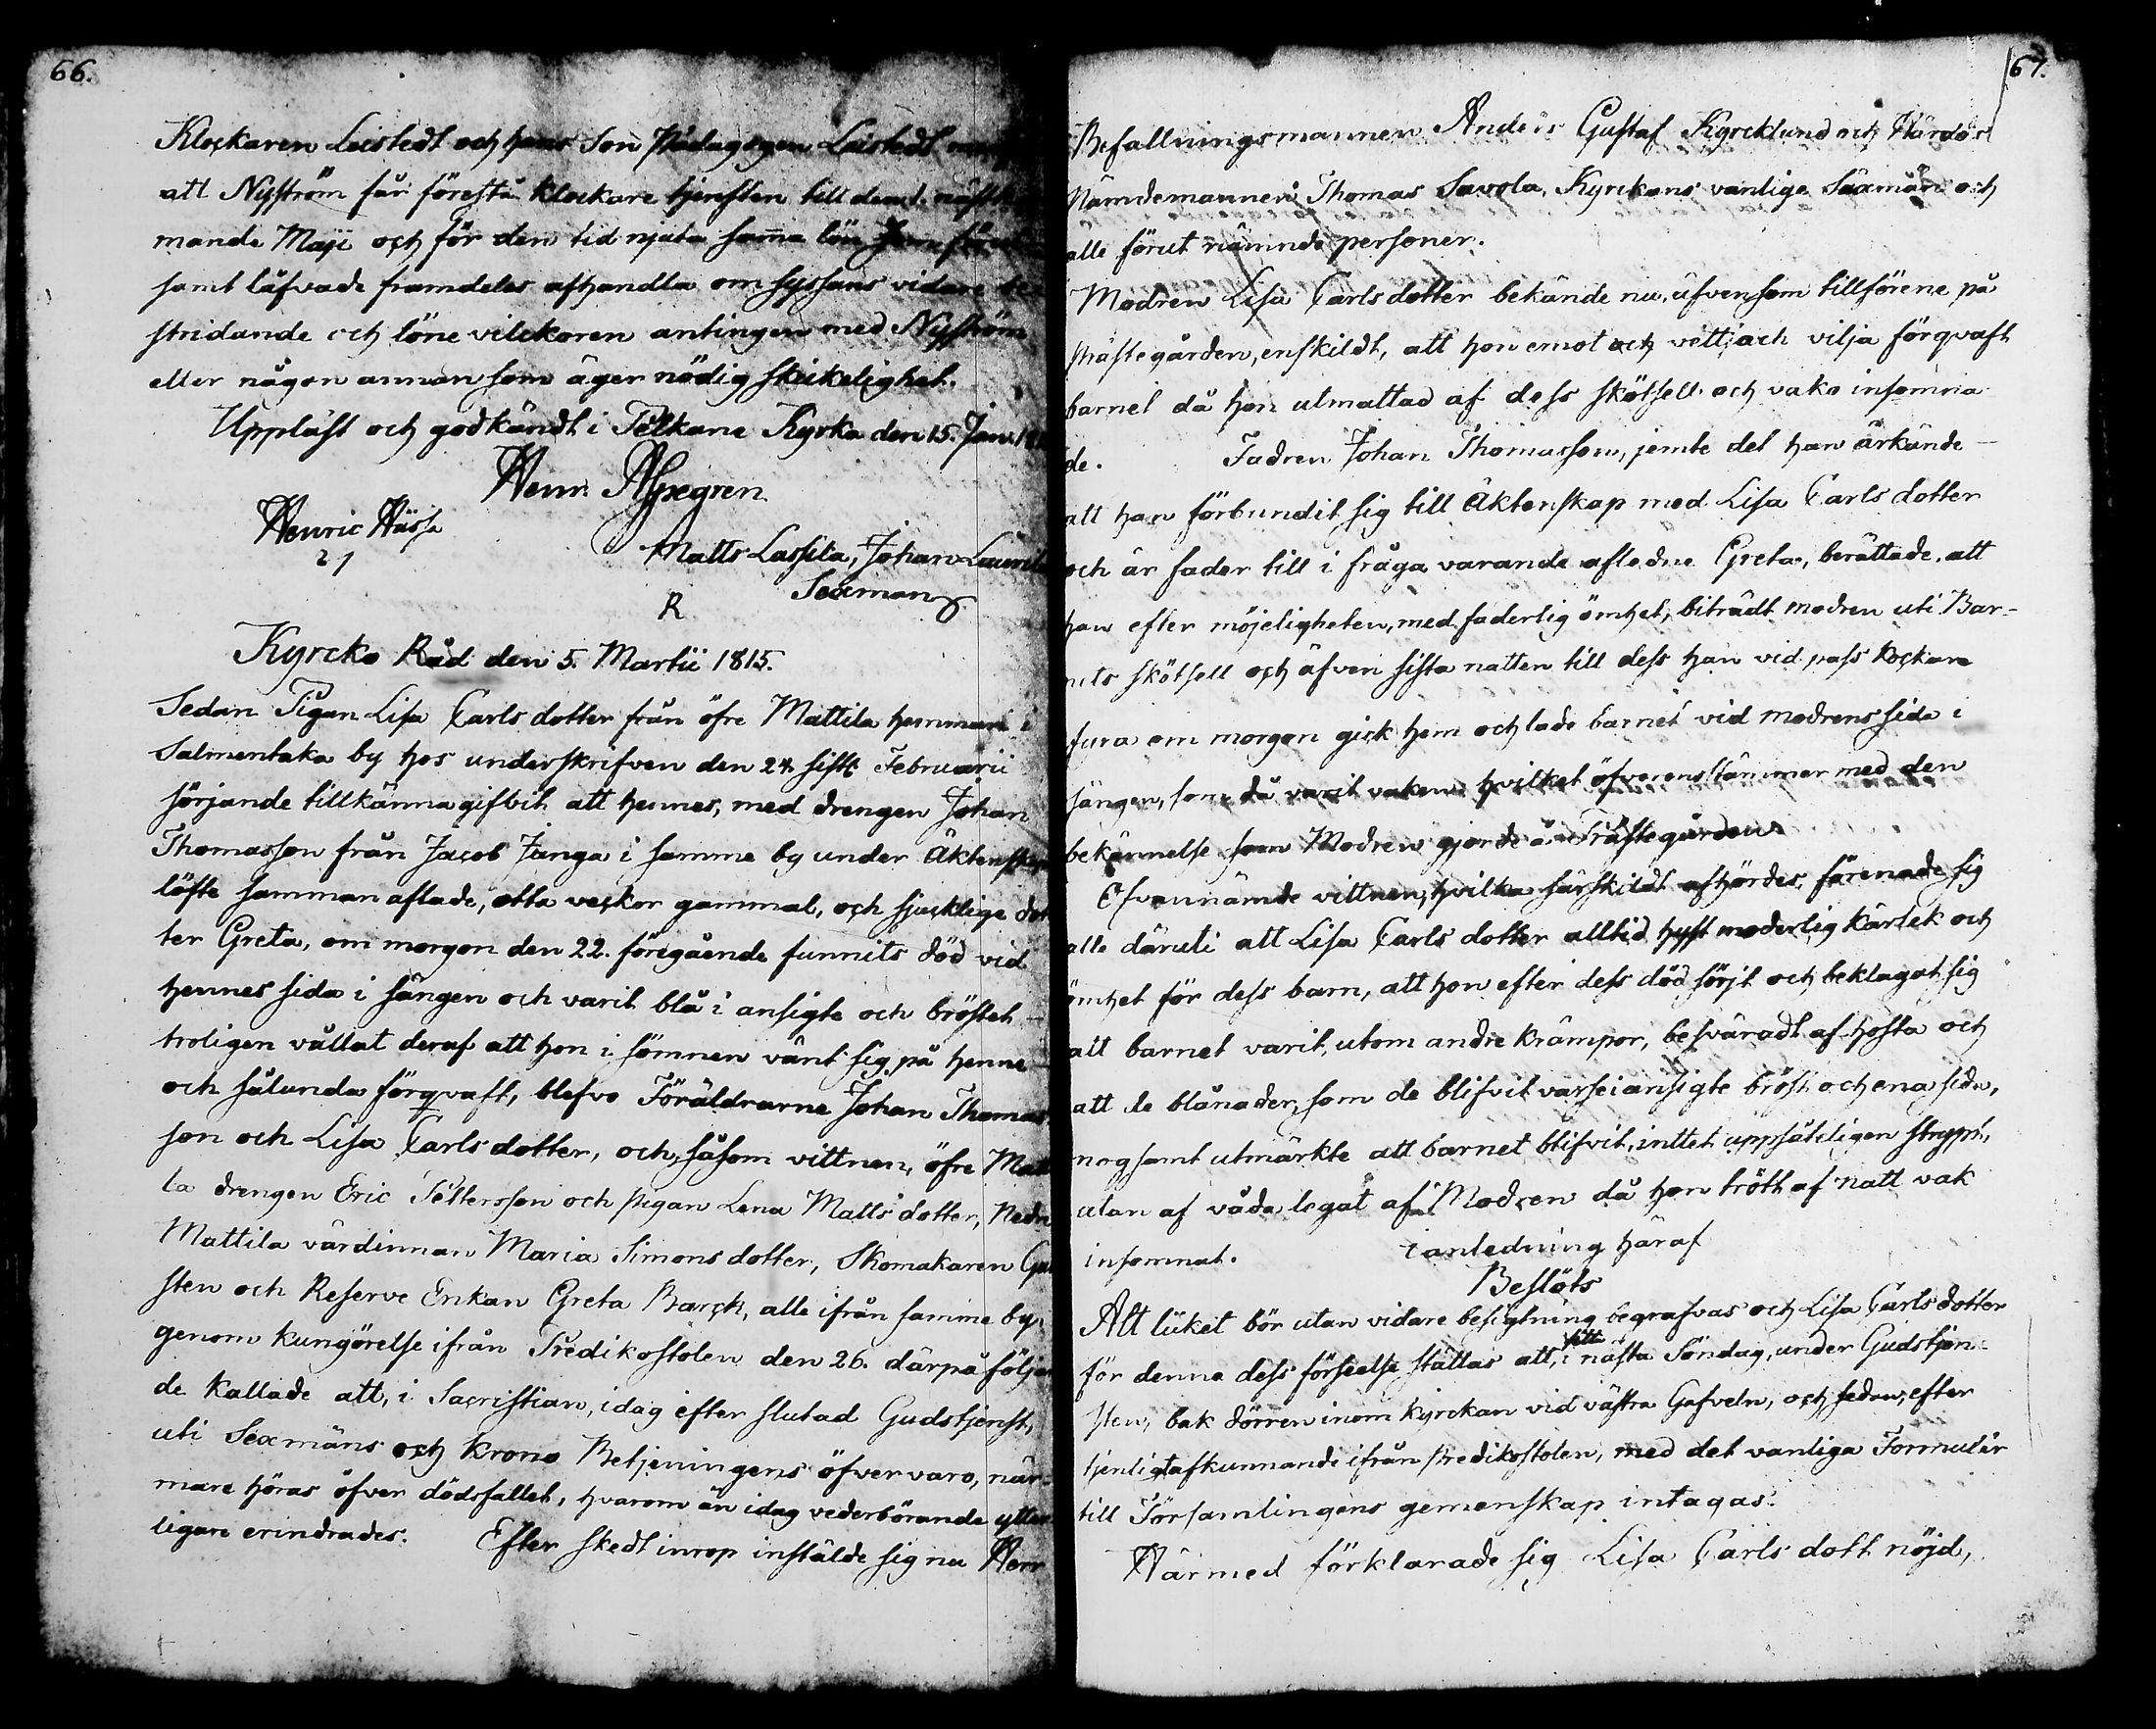 66.
Klockaren Leistedt och hans Son Pädagogen Leistedt
att Nyström får förestå klockare tjensten till dend. näst
mande Maji och för den tid njuta sam̄a lön som förut
samt låfvade framdeles afhandla om sysslans vidare be-
stridande och löne vilckoren antingen med Nyström
eller någon annan som äger nödig skickelighet.
Uppläst och godkändt i Pelkäne Kyrka den 15. Jan. 18
Henr. Ahlgren
Henric Hässa
Matts Lassila, Johan Laurila
Sexman
Kyrcko Råd den 5. Martii 1815.
Sedan Pigan Lisa Carls dotter från öfre Mattila hemman i
Salmentaka by hos underskrifven den 24. sistl. Februarii
sörjande tillkänna gifvit att hennes, med drengen Johan
Thomasson från Jacob Janga i samme by under Äktenskaps
löfte samman aflade, otta veckor gammal, och sjucklige dot
ter Greta, om morgon den 22. föregående funnits död vid
hennes sida i sängen och varit blå i ansigte och bröstet
troligen vållat deraf att hon i sömnen vänt sig på henne
och sålunda förqvaft, blefvo Föräldrarne Johan Thomas
son och Lisa Carls dotter, och, såsom vittnen, öfre Matti
la drengen Eric Pettersson och pigan Lena Matts dotter, Nedre
Mattila värdinnan Maria Simons dotter, Skomakaren
sten och Reserve Enkan Greta Barck, alle ifrån samme by
genom kungörelse ifrån Predikostolen den 26. därpå följan
de kallade att, i Sacristian, idag efter slutad Gudstjenst,
uti Sexmäns och Krono Betjeningens öfvervaro, när-
mare höras öfver dödsfallet, hvarom än idag vederbörande ytter
ligare erindrades. Efter skedt inrop instälde sig nu Herr
67.
Befallningsmannen Anders Gustaf Kyrcklund och Härads
Nämdemannen Thomas Savola, Kyrckans vanlige Sexmän och
alle förut nämnde personer.
Modren Lisa Carls dotter bekände nu, äfvensom tillförene på
Prästegården, enskildt, att hon emot och vett och vilja förqvaft
barnet då hon utmattad af dess skötsell och vako insomna
de. Fadren Johan Thomasson, jemte det han ärkände
att han förbundit sig till Äktenskap med Lisa Carls dotter
och är fader till i fråga varande afledne Greta, berättade, att
han efter möjeligheten, med faderlig ömhet, biträdt modren uti Bar-
nets skötsell och äfven sista natten till dess han vid pass kockan
fyra om morgon gick hem och lade barnet vid modrens sida i
sängen, som då varit vaken hvilket öfverensstämmer med den
bekännelse som Modren gjorde å Prästegården
Ofvannämde vittnen, hvilka särskildt afhördes, förenade sig
alle däruti att Lisa Carls dotter alltid hyst moderlig kärlek och
ömhet för dess barn, att hon efter dess död sörjt och beklagat sig
att barnet varit, utom andre krämpor, besväradt af hosta och
att de blånader, som de blifvit varse i ansigte bröst och ena sida,
nogsamt utmärkte att barnet blifvit, inttet uppsåteligen strypt,
utan af våda legat af Modren då hon trött af natt vak
insomnat. i anledning häraf
Beslöts
Att liket bör utan vidare besigtning begrafvas och Lisa Carls dotter
för denna dess förseelse ställas att, sitt i nästa Söndag, under Gudstjen-
sten, bak dörren inom kyrckan vid västra Gafveln, och sedan, efter
tjenligt afkunnande ifrån predikostolen, med det vanliga Formulär
till Församlingens gemenskap intagas.
Härmed förklarade sig Lisa Carls dott nöjd,